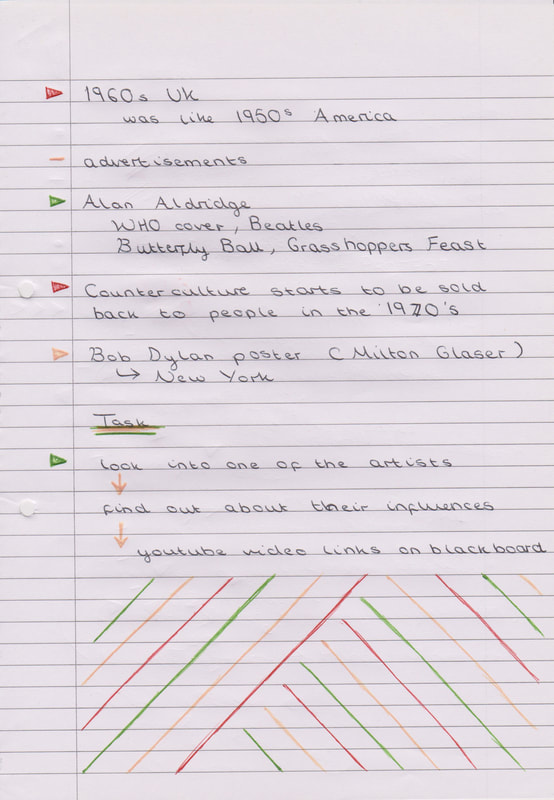 1960s UK
was like 1950s America
advertisements
Alan Aldridge
WHO cover, Beatles
Butterfly Ball, Grasshoppers Feast
Counterculture starts to be sold
back to people in the '1970's
Bob Dylan poster (Milton Glaser)
↳ New York
Task
look into one of the artists
find out about their influences
youtube video links on blackboard